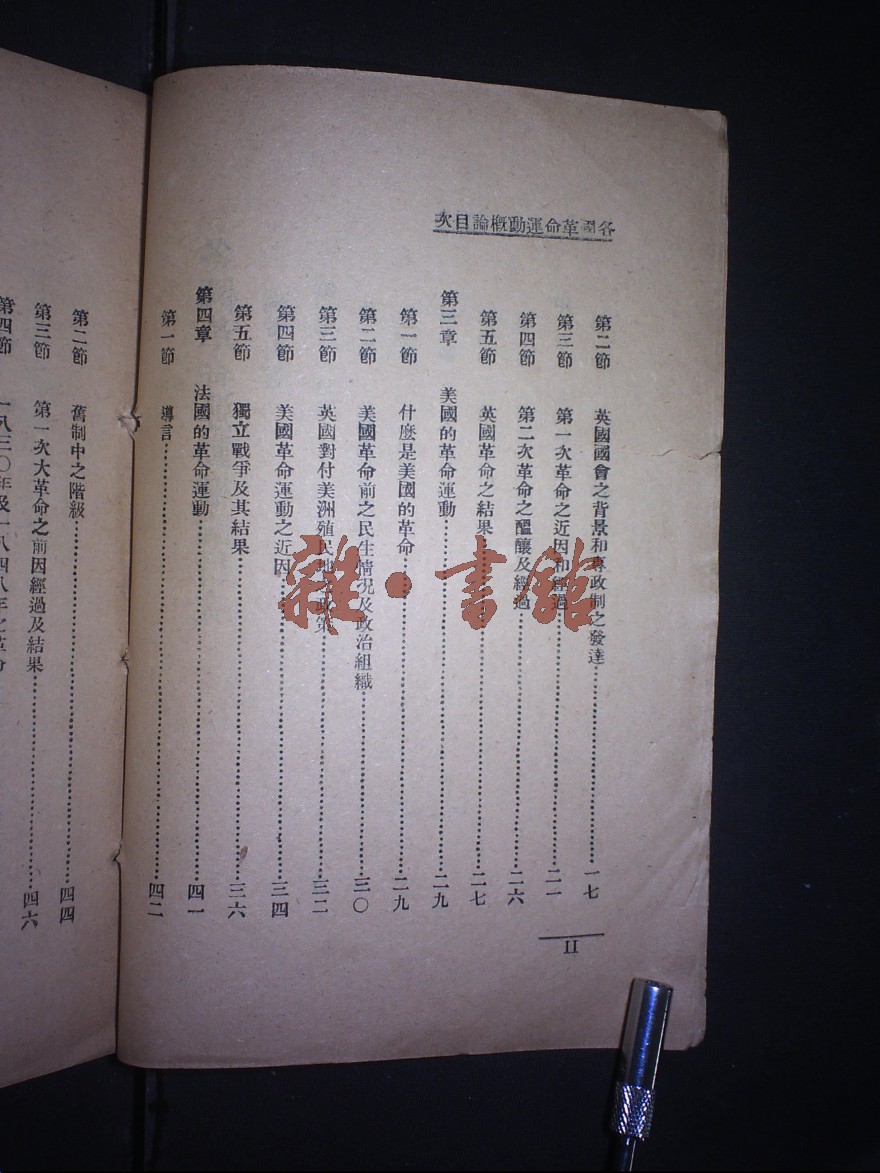 各國革命運動概論目次
第二節 英國國會之背景和專政制之發達 一七
第三節 第一次革命之近因和經過 二一
第四節 第二次革命之醞釀及經過 二六
第五節 英國革命之結果 二七
第三章 美國的革命運動 二九
第一節 什麼是美國的革命 二九
第二節 美國革命前之民生情況及政治組織 三〇
第三節 英國對付美洲殖民地之政策 三二
第四節 美國革命運動之近因 三四
第五節 獨立戰爭及其結果 三六
第四章 法國的革命運動 四一
第一節 導言 四二
II
第二節 舊制中之階級 四四
第三節 第一次大革命之前因經過及結果 四六
第四節 一八三〇年及一八四八年之革命
雜·書館